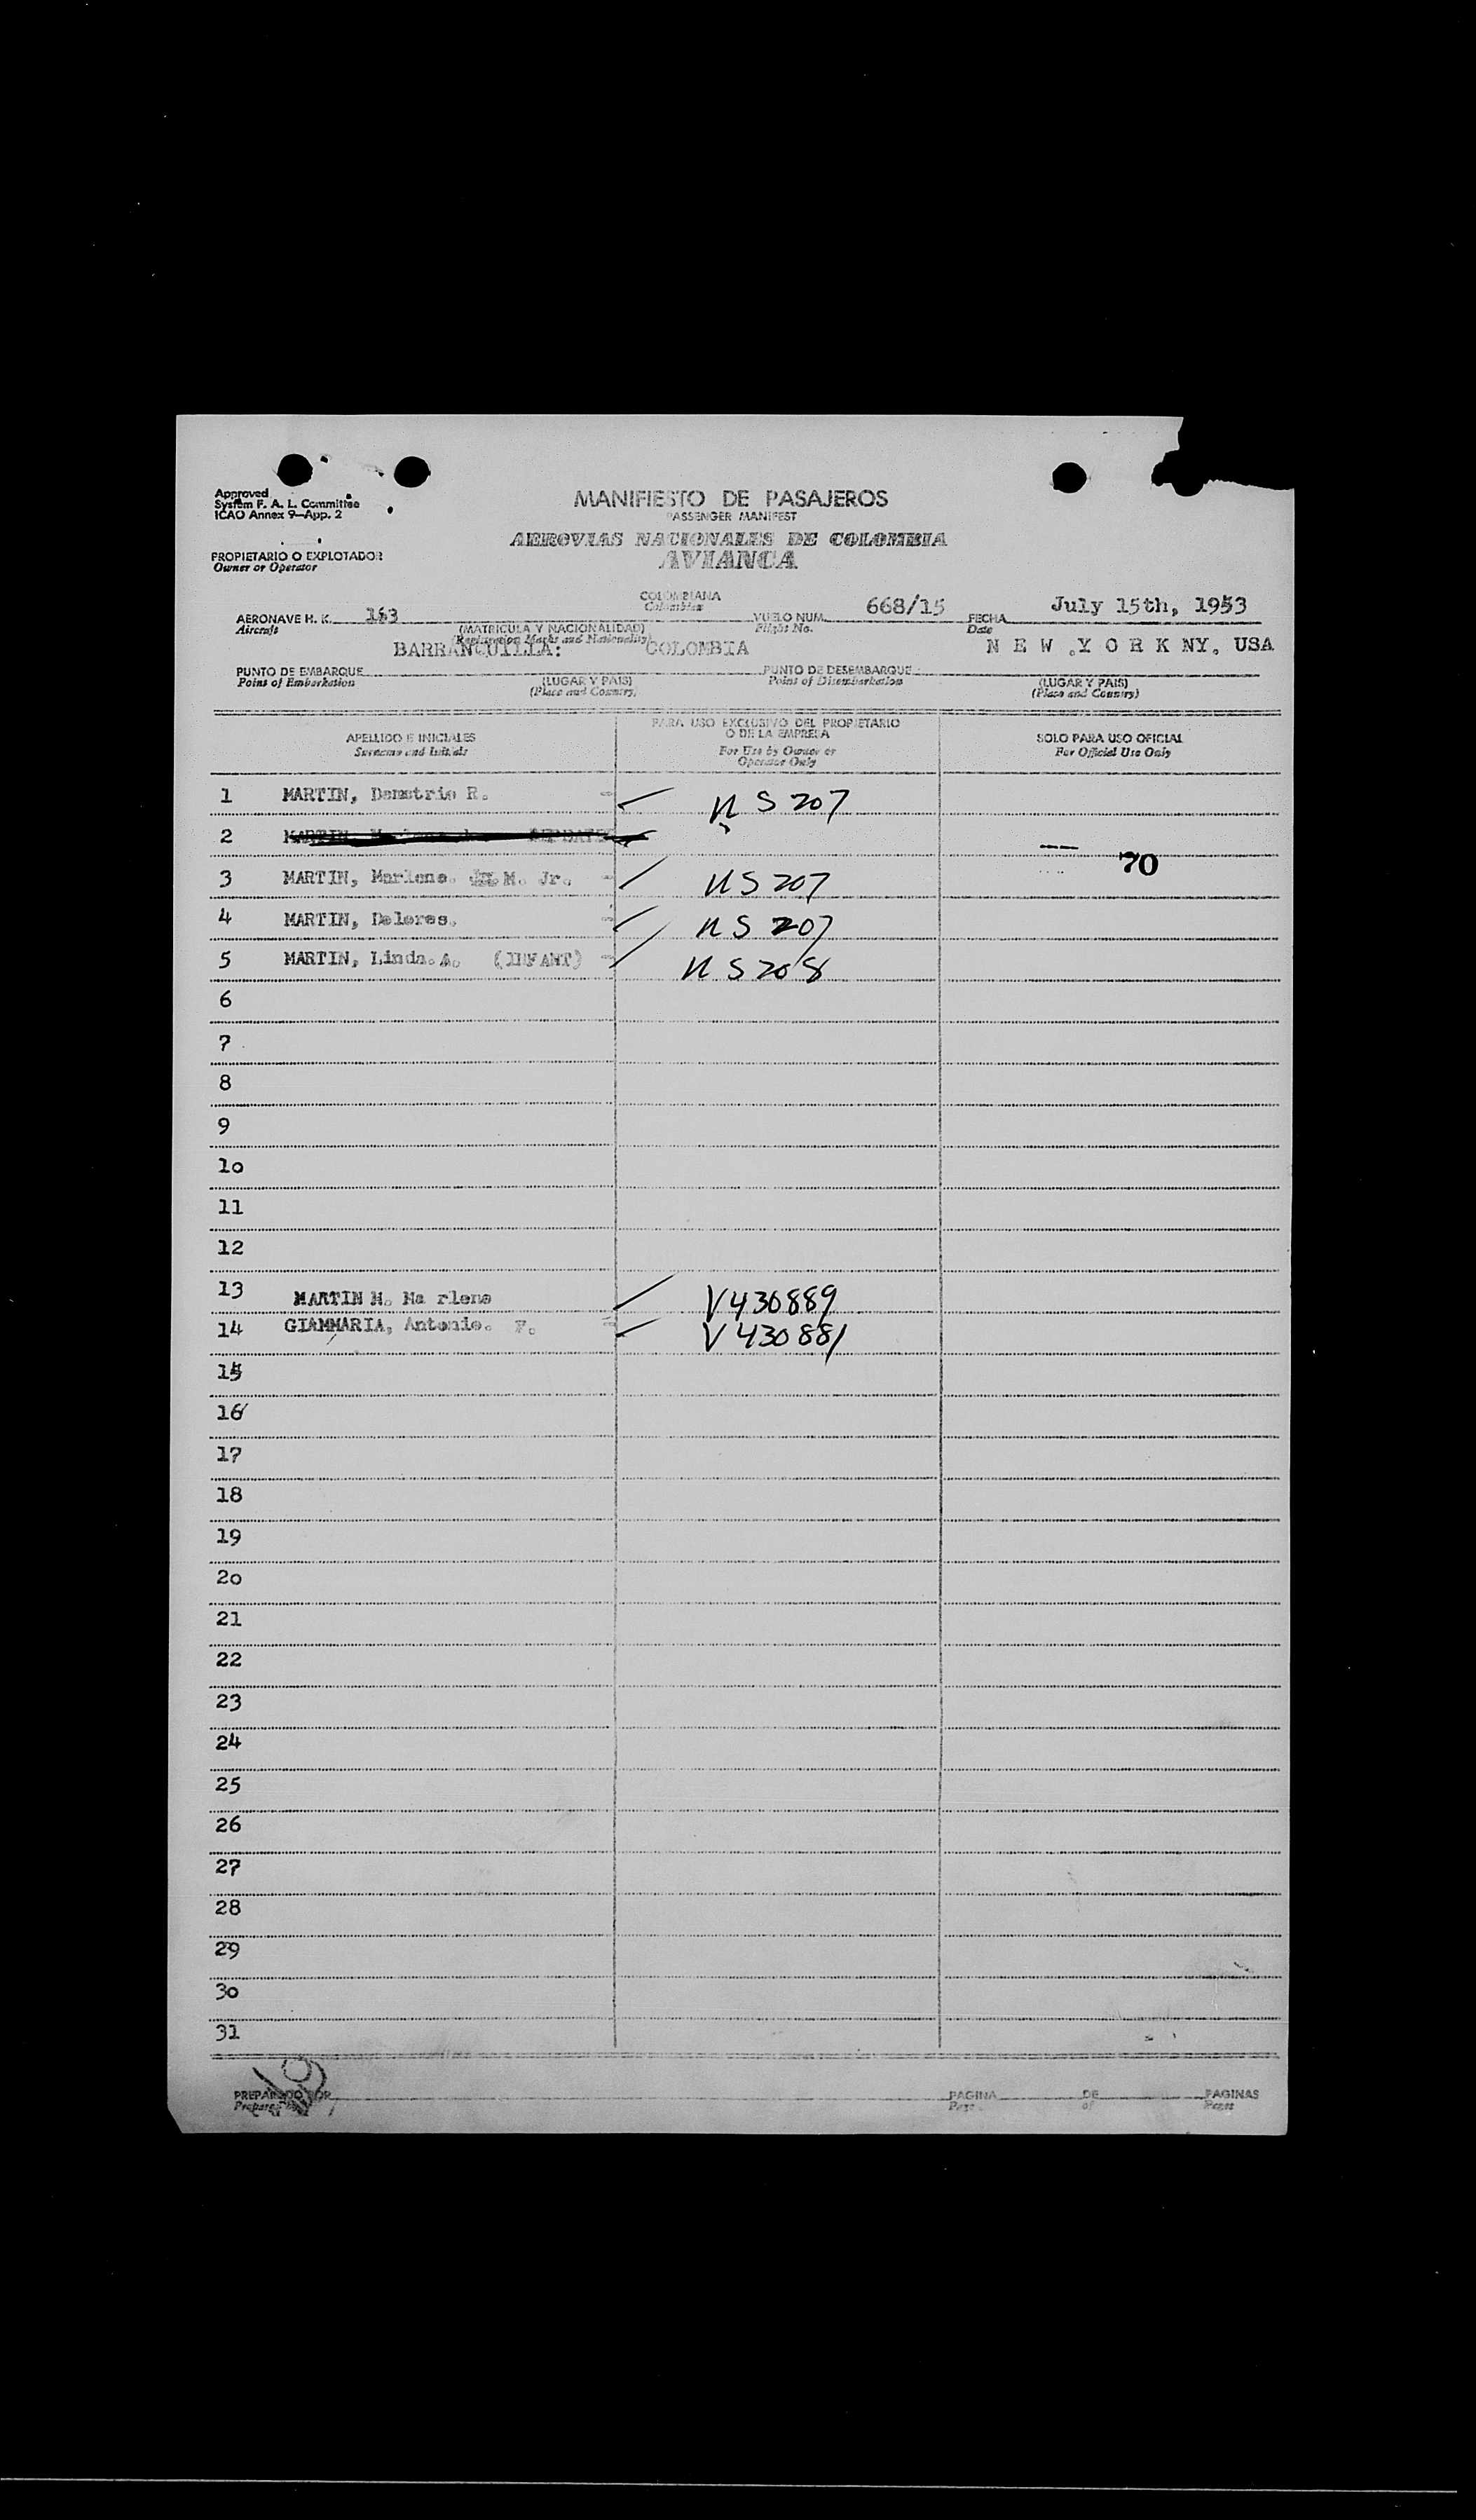 Approved
System F. A. L. Committee
ICAO Annex 9—App. 2
MANIFIESTO DE PASAJEROS
PASSENGER MANIFEST
AEROVIAS NACIONALES DE COLOMBIA
AVIANCA
PROPIETARIO O EXPLOTADOR
Owner or Operator
COLOMBIANA
Colombian
AERONAVE H. K. 163 VUELO NUM. 668/15 FECHA July 15th, 1953
Aircraft (MATRICULA Y NACIONALIDAD) Flight No. Date
(Registration Marks and Nationality)
BARRANQUILLA: COLOMBIA N E W .Y O R K NY. USA
PUNTO DE EMBARQUE (LUGAR Y PAIS) PUNTO DE DESEMBARQUE (LUGAR Y PAIS)
Point of Embarkation (Place and Country) Point of Disembarkation (Place and Country)
APELLIDO E INICIALES PARA USO EXCLUSIVO DEL PROPIETARIO O DE LA EMPRESA SOLO PARA USO OFICIAL
Surname and Initials For Use by Owner or Operator Only For Official Use Only
1 MARTIN, Demetrio R. US 207
2 MARTIN,
70
3 MARTIN, Marlene. M. Jr. US 207
4 MARTIN, Delores. US 207
5 MARTIN, Linda. A. (INFANT) US 208
6
7
8
9
10
11
12
13 MARTIN M. Ma rlene V430889
14 GIAMMARIA, Antonio. F. V430881
15
16
17
18
19
20
21
22
23
24
25
26
27
28
29
30
31
PREPARADO POR PAGINA DE PAGINAS
Prepared by Page of Pages